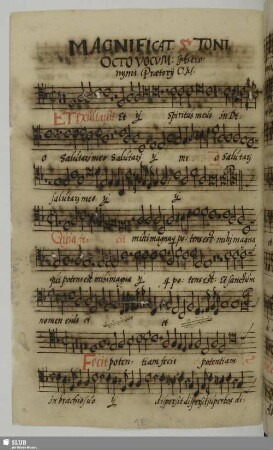 MAGNIFICAT 5. TONI
OCTO VOCVM. Hiero
nymi Prætorij C.M.
ET exultavit et ij spiritus meus in De
o salutari meo salutari ij me o salutari
salutari meo ij ij
Quia fe cit mihi magna po tens est mihi magna
qui potens est mihi magna ij q. po tens est. Et sanctum
nomen eius et et
Fecit poten tiam fecit potentiam
in brachio suo ij dispersit dispersit superbos di
SLUB